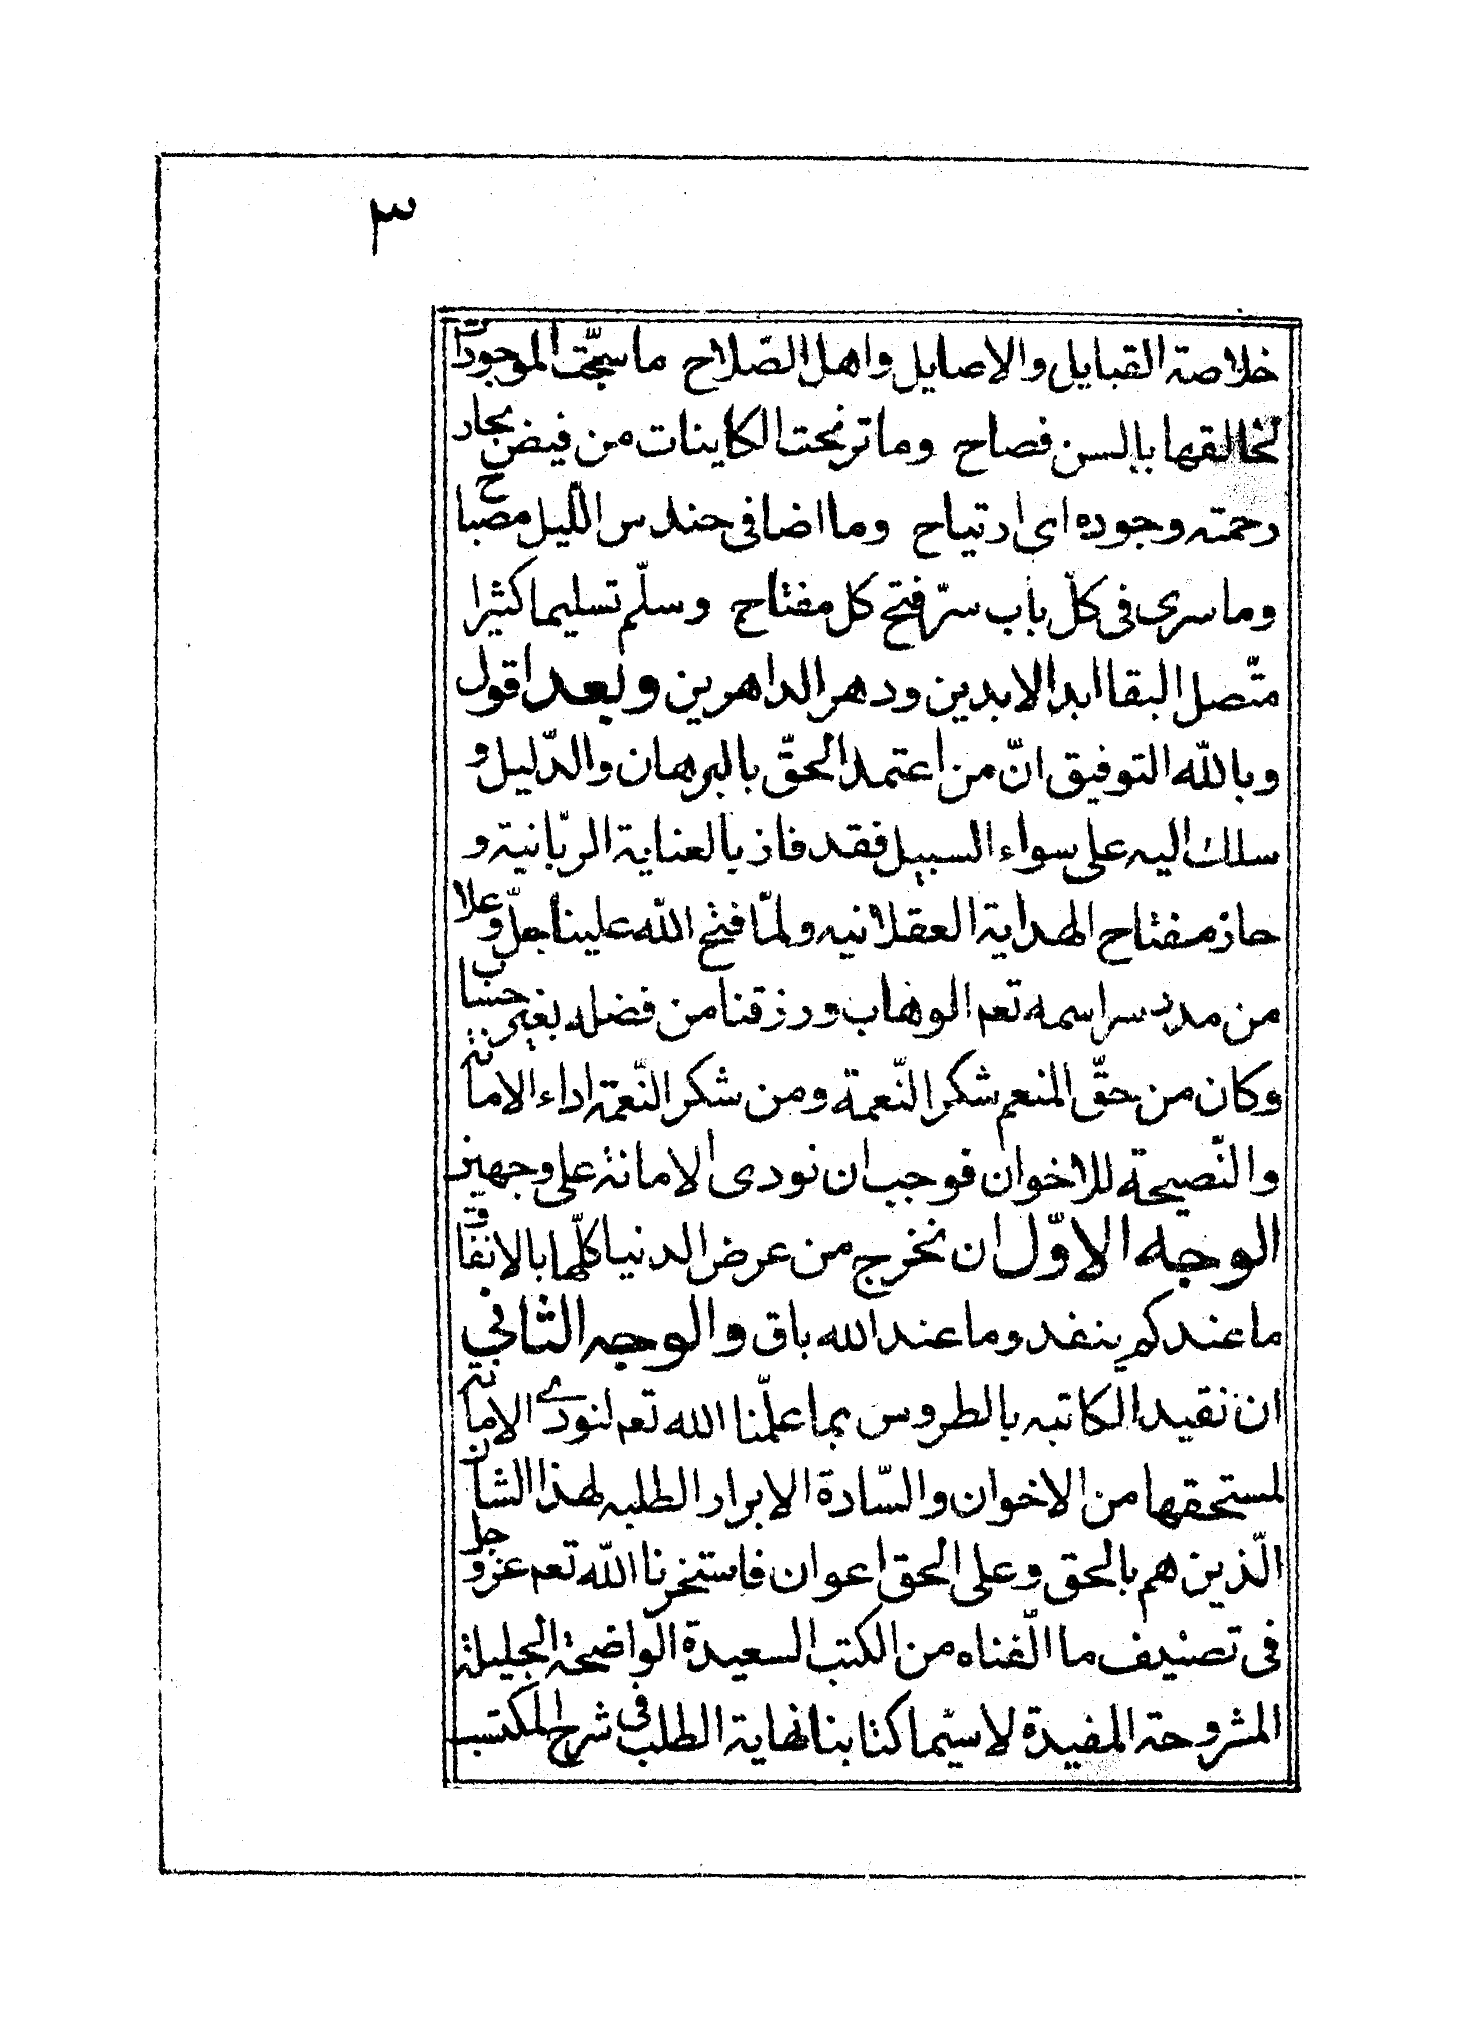 ٣
خلاصة القبايل والاصايل واهل الصّلاح ما سبّحت الموجودات
لخالقها بالسن فصاح وما ترنحت الكاينات من فيض بحار
رحمته وجوده اي ارتياح وما اضا في حندس الليل مصباح
وما سرى في كلّ باب سرّ فتح كل مفتاح وسلّم تسليما كثيرا
متّصل البقا ابد الابدين ودهر الداهرين وبعد اقول
وبالله التوفيق انّ من اعتمد الحقّ بالبرهان والدّليل و
سلك اليه على سواء السبيل فقد فاز بالعناية الربّانية و
حاز مفتاح الهداية العقلانيه ولمّا فتح الله علينا جلّ وعلا
من مدد سر اسمه تعم الوهاب ورزقنا من فضله بغير حساب
وكان من حقّ المنعم شكر النّعمة ومن شكر النّعمة اداء الامانة
والنّصيحة للاخوان فوجب ان نودى الامانة على وجهين
الوجه الاوّل ان نخرج من عرض الدنيا كلّها بالانفاق
ما عندكم ينفد وما عند الله باق والوجه الثاني
ان نقيد الكاتبه بالطروس بما علّمنا الله تعم لنودي الامانة
لمستحقها من الاخوان والسّادة الابرار الطلبه لهذا الشان
الّذين هم بالحق وعلى الحق اعوان فاستخرنا الله تعم عز وجل
في تصنيف ما الّفناه من الكتب السعيدة الواضحة الجليلة
المشروحة المفيدة لا سيّما كتابنا نهاية الطلب في شرح المكتسب